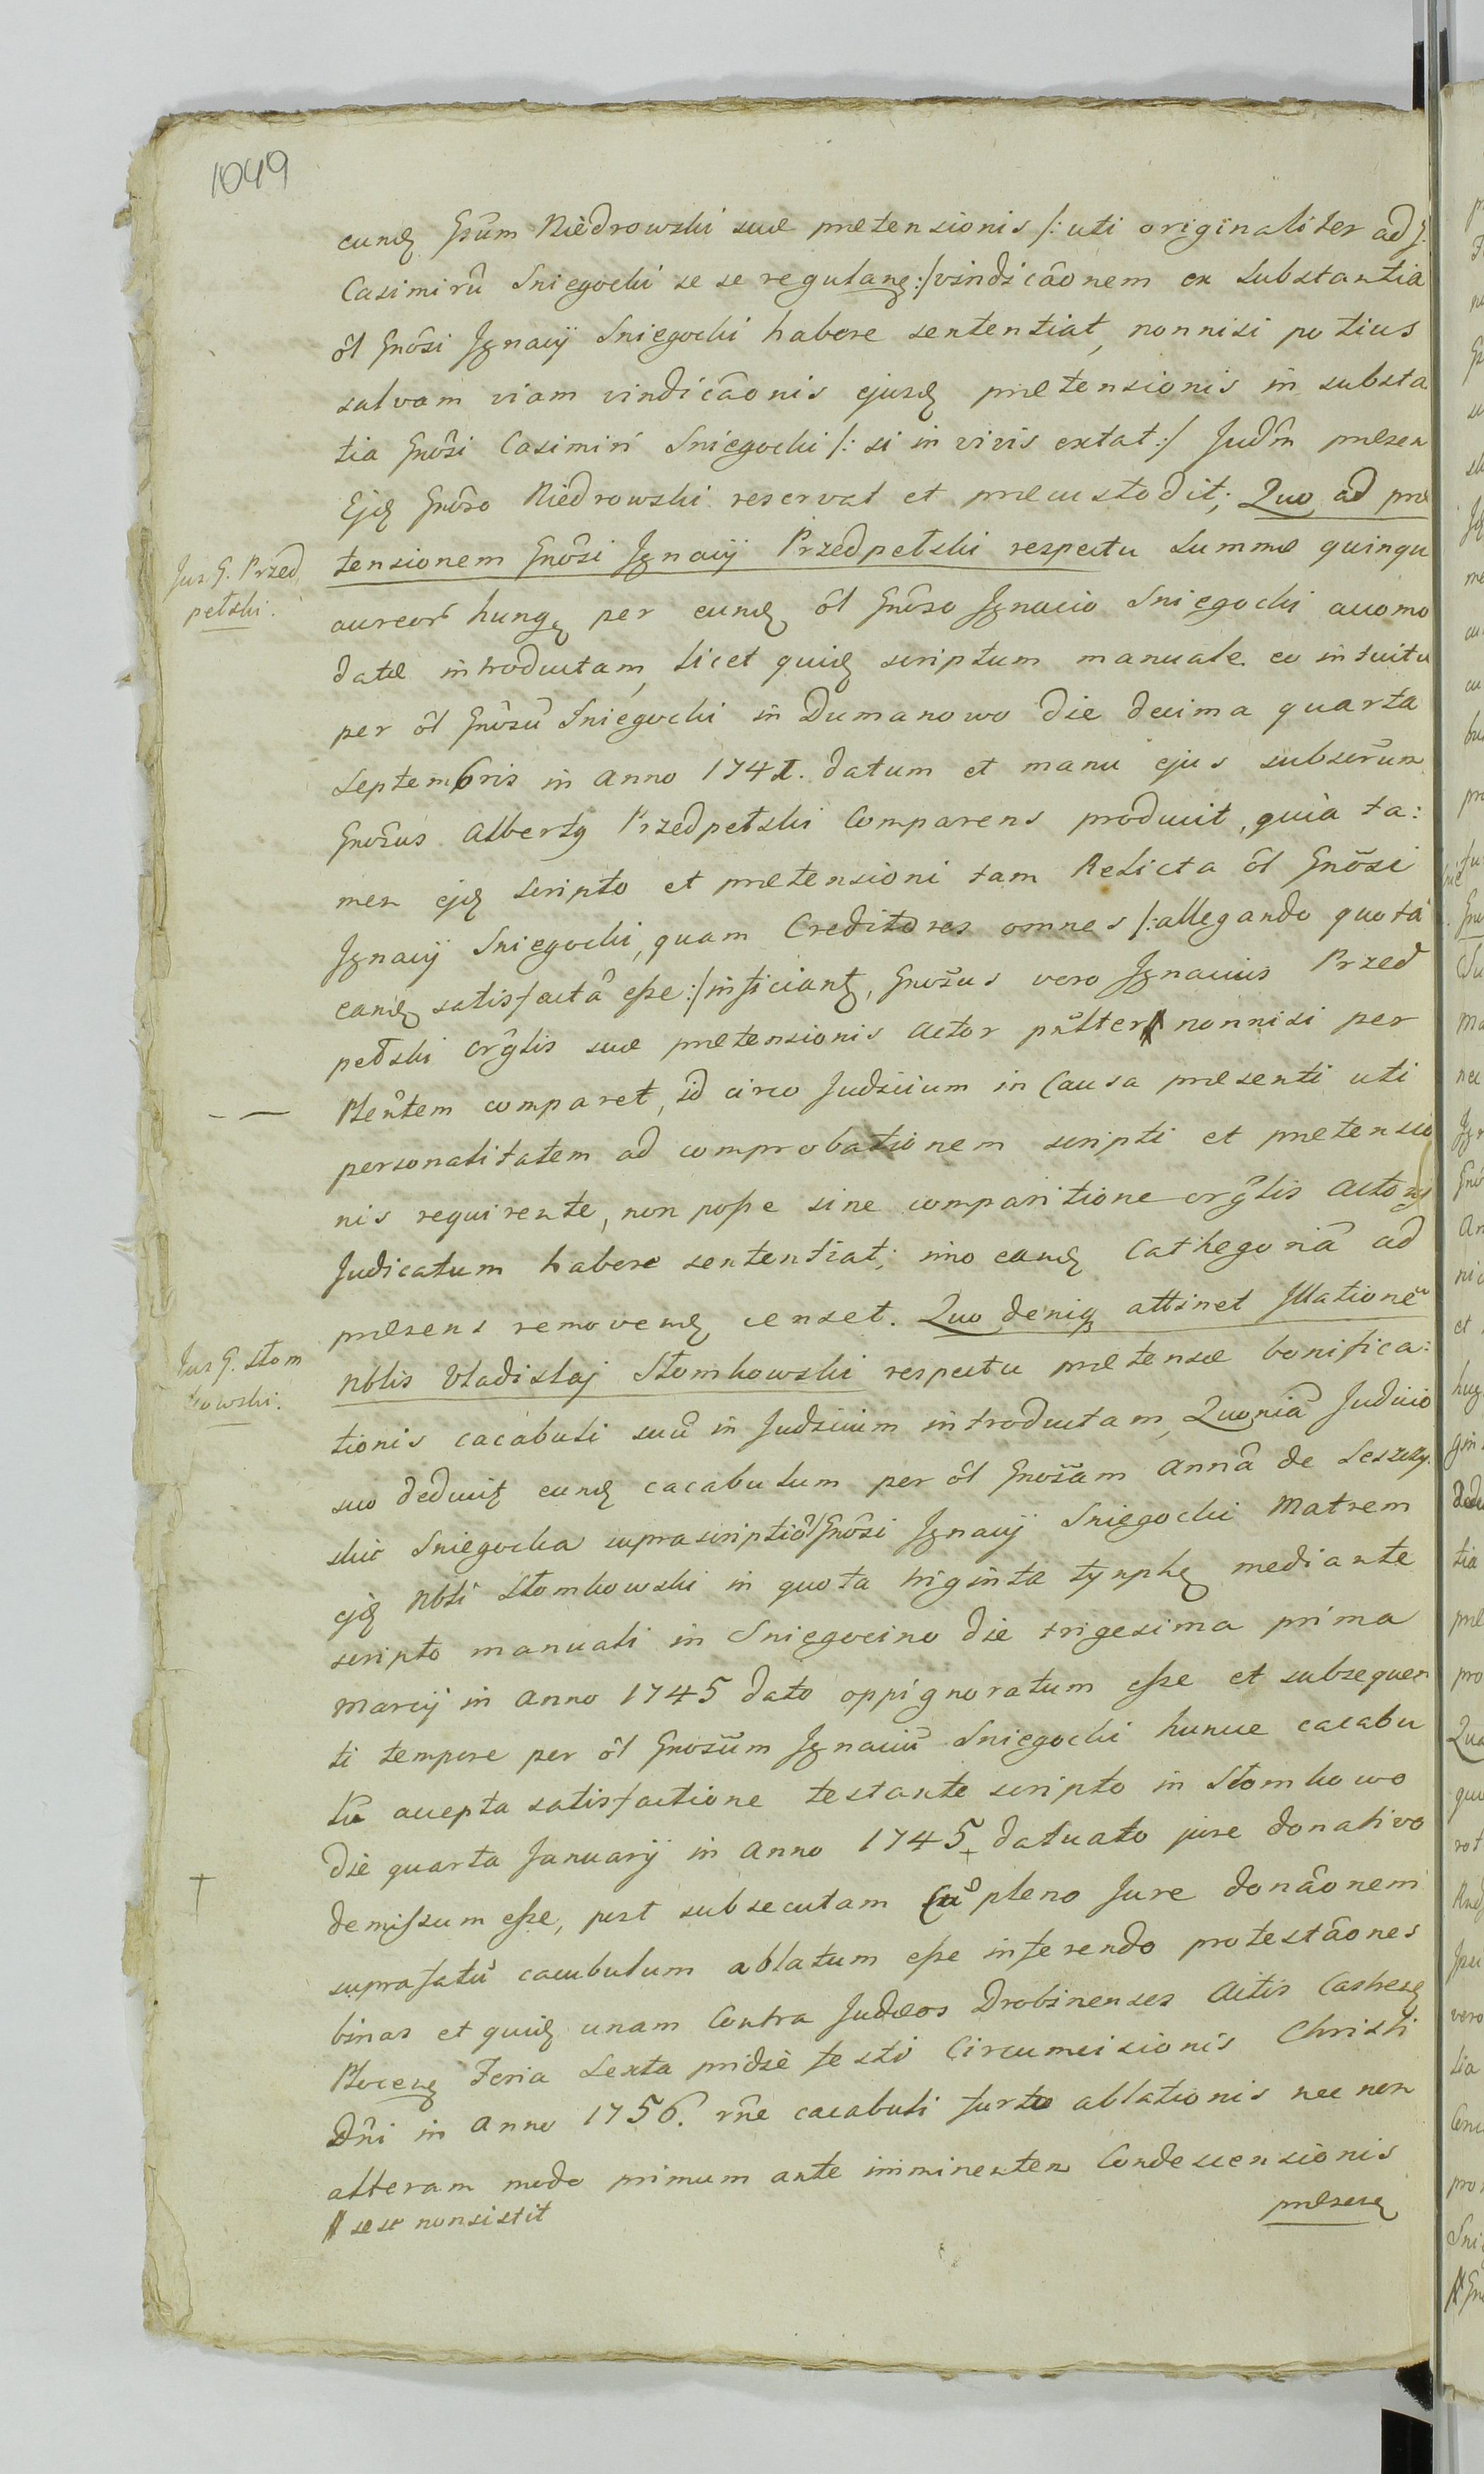 1049
eundę Gsum Niedrowski suæ prætensionis /: uti originaliter ad G.
Casimirũ Sniegocki se se regulanę :/ vindicãonem ex substantia
ol Gnosi Ignacij Sniegocki habere sententiat, nonnisi potius
salvam viam vindicãonis ejusdę prætensionis in substa
tia Gnosi Casimiri Sniegocki /: si in vivis extat :/ Judm præsen
Ejdę Gnoso Niedrowski reservat et præcustodit; Quo ad præ
Jus G. Przed
pełski.
tensionem Gnosi Ignacij Przedpełski respectu summæ quinqu
aureor hungę per eundę ol Gnoso Ignacio Sniegocki accomo
datæ introductam, licet quidę scriptum manuale eo intuitu
per ol Gnosũ Sniegocki in Dumanowo die decima quarta
Septembris in anno 1741. datum et manu ejus subscrum
Gnosus Albertę Przedpełski Comparens produxit, quia ta:
men ejdę scripto et prætensioni tam Relicta ol Gnosi
Ignacij Sniegocki, quam Creditores omnes /: allegando quotã
eandę satisfactã esse :/ inficiantę, Gnosus vero Ignacius Przed
pełski orglis suæ prætensionis Actor pnlter # nonnisi per
Plentem comparet, id circo Judicium in Causa præsenti uti
personalitatem ad comprobationem scripti et prætensio
nis requirente, non posse sine comparitione orglis Actoris
Judicatum habere sententiat; imo eandę Cathegoriã ad
præsens removendę censet. Quo denię attinet Illationẽ
Jus G. Słom
kowski.
Nblis Vladislaj Słomkowski respectu prætensæ bonifica:
tionis cacabuli suũ in Judicium introductam, Quoniã Judicio
suo deducitę eundę cacabulum per ol Gnosam Annã de Leszczy
skie Sniegocka suprascripti ol Gnosi Ignacij Sniegocki Matrem
ejdę Nbli Słomkowski in quota triginta tynphę mediante
scripto manuali in Sniegocino die trigesima prima
Marcij in anno 1745 dato oppignoratum esse et subsequen
ti tempore per ol Gnosum Ignaciũ Sniegocki huncce cacabu
lũ accepta satisfactione testante scripto in Słomkowo
die quarta Januarij in anno 1745 + datuato jure donativo
†
demissum esse, post subsecutam cũ pleno Jure donãonem
suprafatũ cacubulum ablatum esse inferendo protestãones
binas et quidę unam Contra Judæos Drobinenses Actis Castrenę
Plocenę Feria Sexta pridie festi Circumcisionis Christi
Dni in anno 1756. rne cacabuli furto ablationis nec non
alteram modo primum ante imminentem Condescensionis
# sese nonsistit
præsenę